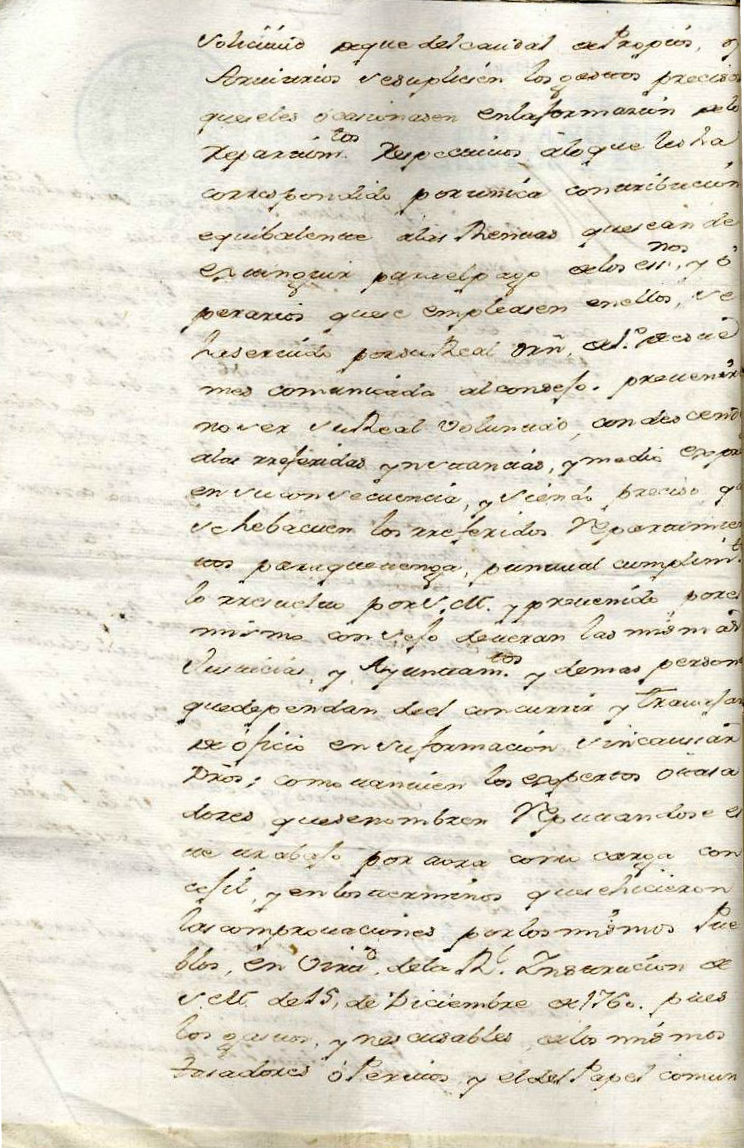 solicitud de que del caudal de Propios, y
Arvitrios se supliesen los gastos precisos
que seles ocasionasen enlaformacion delo
Repartim.tos Respectivos àlo que les ha
correspondido por unica contribucion
equibalente alas Rentas que sean de
extinguir parael pago delos ess.nos, y ò
perarios que se empleasen enellos, se
haservido porsu Real orñ, de 1.º deeste
mes comunicada alconsejo. prevenir
no ser su Real Voluntad, condescend
alas rreferidas ynstancias, y medio expre
en su consecuencia, y siendo preciso q
se hebacuen los rreferidos Repartimie
tos paraquetenga, puntual cumplim.to
lo rresuelto por S. M. y prevenido por el
mismo consejo deveran las mismas
Justicias, y Ayuntam.tos y demas person
quedependan deel concurrir y travajar
de òficio en su formacion sin causar
Dros; como tanvien los expertos ò tasa
dores, quesenombren Reputandose es
te travajo por aora como carga con
cejil, y enlos terminos que se hicieron
las comprovaciones por los mismos Pue
blos, en virtd, dela Rl. Instrucion de
S. M. de 15, de Diciembre de 1760. pues
los gastos, ynescusables, delos mismos
tasadores ò Peritos, y el del Papel comun